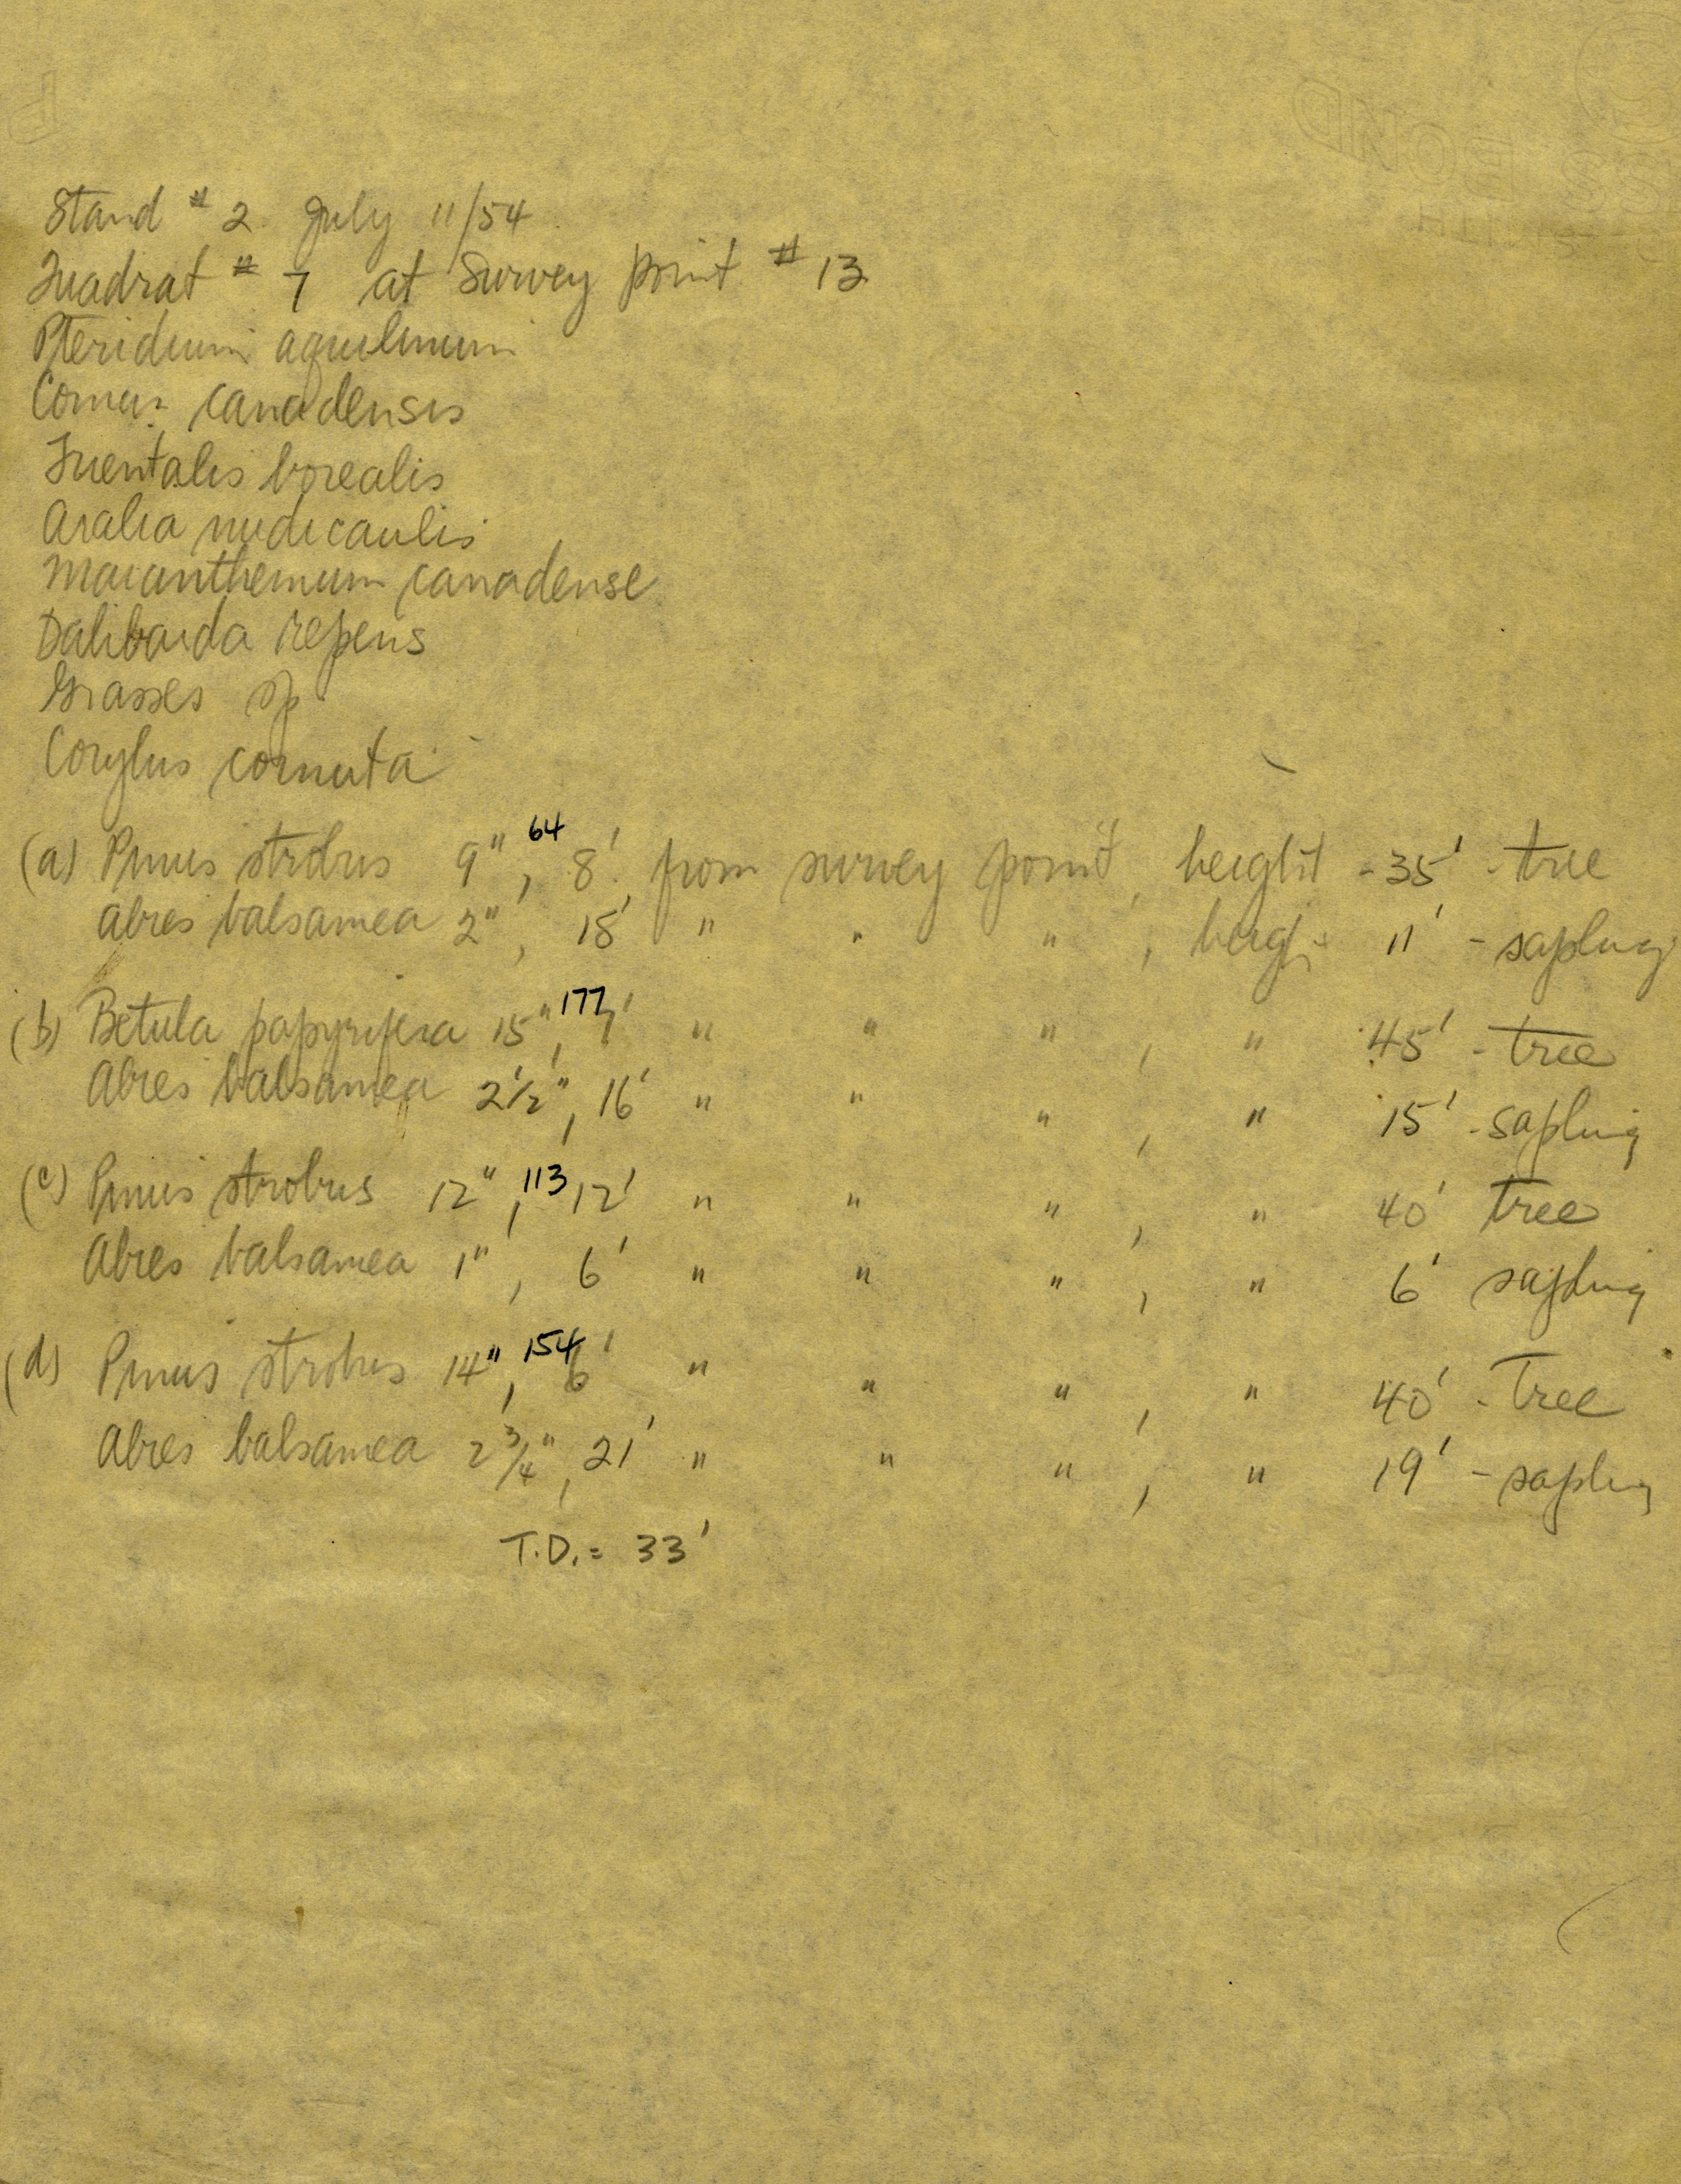 Stand # 2 July 11/54
Quadrat # 7 at Survey point # 13
Pteridium aquilinum
Cornus canadensis
Trientalis borealis
Aralia nudicaulis
Maianthemum canadense
Dalibarda repens
Grasses sp.
Corylus cornuta
(a) Pinus strobus 9", 64 8' from survey point, height - 35' - tree
Abies balsamea 2", 18' " " ", heigh - 11' - sapling
(b) Betula papyrifera 15", 177 7' " " ", " 45' - tree
Abies balsamea 2 1/2", 16' " " ", " 15' - sapling
(c) Pinus strobus 12", 113 12' " " ", " 40' tree
Abies balsamea 1", 6' " " ", " 6' sapling
(d) Pinus strobus 14", 154 6' " " ", " 40' - Tree
Abies balsamea 2 3/4", 21' " " ", " 19' - sapling
T.D. = 33'
BOND